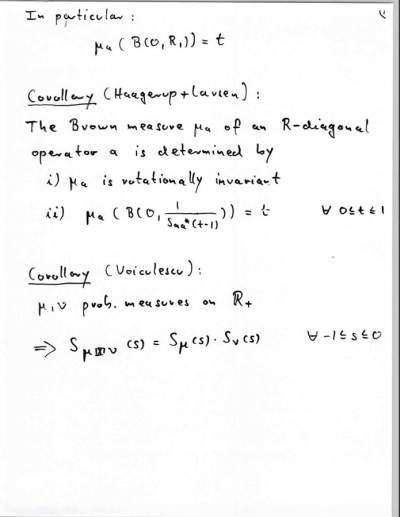 In particular:
μₐ(B(0,R₁)) = t
Corollary (Haagerup+Larsen):
The Brown measure μₐ of an R-diagonal
operator a is determined by
i) μₐ is rotationally invariant
ii) μₐ(B(0, 1/S_{aa*}(t-1))) = t ∀ 0≤t≤1
Corollary (Voiculescu):
μ,ν prob. measures on ℝ₊
⟹ S_{μ⊠ν}(s) = S_μ(s)·S_ν(s) ∀ -1≤s≤0